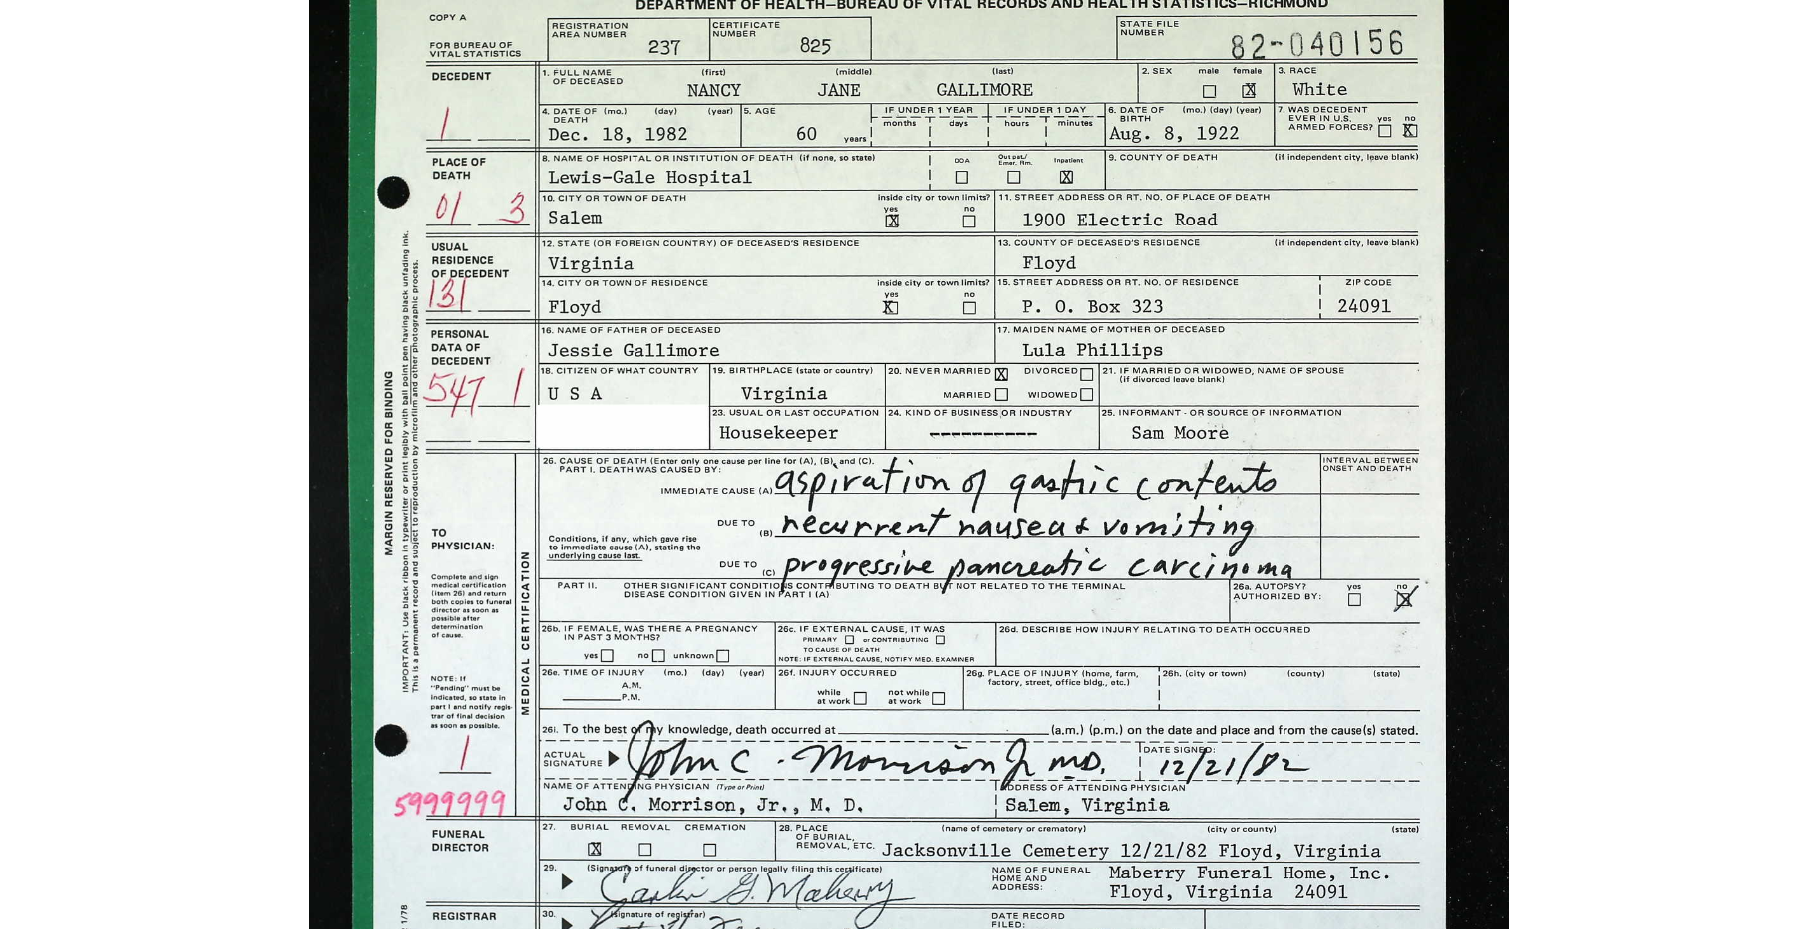 DEPARTMENT OF HEALTH—BUREAU OF VITAL RECORDS AND HEALTH STATISTICS—RICHMOND
COPY A
FOR BUREAU OF
VITAL STATISTICS
REGISTRATION
AREA NUMBER 237
CERTIFICATE
NUMBER 825
STATE FILE
NUMBER 82-040156
DECEDENT
1
1. FULL NAME OF DECEASED (first) (middle) (last)
NANCY JANE GALLIMORE
2. SEX male female X
3. RACE
White
4. DATE OF DEATH (mo.) (day) (year)
Dec. 18, 1982
5. AGE
60 years
IF UNDER 1 YEAR
months days
IF UNDER 1 DAY
hours minutes
6. DATE OF BIRTH (mo.) (day) (year)
Aug. 8, 1922
7. WAS DECEDENT
EVER IN U.S.
ARMED FORCES? yes no X
PLACE OF
DEATH
01 3
8. NAME OF HOSPITAL OR INSTITUTION OF DEATH (if none, so state)
Lewis-Gale Hospital
DOA Out pat/ Emer. Rm. Inpatient X
9. COUNTY OF DEATH (if independent city, leave blank)
10. CITY OR TOWN OF DEATH inside city or town limits?
Salem yes X no
11. STREET ADDRESS OR RT. NO. OF PLACE OF DEATH
1900 Electric Road
USUAL
RESIDENCE
OF DECEDENT
131
12. STATE (OR FOREIGN COUNTRY) OF DECEASED'S RESIDENCE
Virginia
13. COUNTY OF DECEASED'S RESIDENCE (if independent city, leave blank)
Floyd
14. CITY OR TOWN OF RESIDENCE inside city or town limits?
Floyd yes X no
15. STREET ADDRESS OR RT. NO. OF RESIDENCE ZIP CODE
P. O. Box 323 24091
PERSONAL
DATA OF
DECEDENT
547 1
16. NAME OF FATHER OF DECEASED
Jessie Gallimore
17. MAIDEN NAME OF MOTHER OF DECEASED
Lula Phillips
18. CITIZEN OF WHAT COUNTRY
U S A
19. BIRTHPLACE (state or country)
Virginia
20. NEVER MARRIED X DIVORCED
MARRIED WIDOWED
21. IF MARRIED OR WIDOWED, NAME OF SPOUSE
(if divorced leave blank)
23. USUAL OR LAST OCCUPATION
Housekeeper
24. KIND OF BUSINESS OR INDUSTRY
----------
25. INFORMANT - OR SOURCE OF INFORMATION
Sam Moore
MARGIN RESERVED FOR BINDING
IMPORTANT: Use black ribbon in typewriter or print legibly with ball point pen having black unfading ink.
This is a permanent record and subject to reproduction by microfilm and other photographic process.
TO
PHYSICIAN:
Complete and sign
medical certification
(item 26) and return
both copies to funeral
director as soon as
possible after
determination
of cause.
NOTE: If
"Pending" must be
indicated, so state in
part I and notify regis-
trar of final decision
as soon as possible.
1
5999999
MEDICAL CERTIFICATION
26. CAUSE OF DEATH (Enter only one cause per line for (A), (B), and (C).
PART I. DEATH WAS CAUSED BY:
INTERVAL BETWEEN
ONSET AND DEATH
IMMEDIATE CAUSE (A) aspiration of gastric contents
DUE TO (B) recurrent nausea & vomiting
Conditions, if any, which gave rise
to immediate cause (A), stating the
underlying cause last.
DUE TO (C) progressive pancreatic carcinoma
PART II. OTHER SIGNIFICANT CONDITIONS CONTRIBUTING TO DEATH BUT NOT RELATED TO THE TERMINAL
DISEASE CONDITION GIVEN IN PART I (A)
26a. AUTOPSY? yes no X
AUTHORIZED BY:
26b. IF FEMALE, WAS THERE A PREGNANCY
IN PAST 3 MONTHS?
yes no unknown
26c. IF EXTERNAL CAUSE, IT WAS
PRIMARY or CONTRIBUTING
TO CAUSE OF DEATH
NOTE: IF EXTERNAL CAUSE, NOTIFY MED. EXAMINER
26d. DESCRIBE HOW INJURY RELATING TO DEATH OCCURRED
26e. TIME OF INJURY (mo.) (day) (year)
A.M.
P.M.
26f. INJURY OCCURRED
while at work not while at work
26g. PLACE OF INJURY (home, farm,
factory, street, office bldg., etc.)
26h. (city or town) (county) (state)
26i. To the best of my knowledge, death occurred at (a.m.) (p.m.) on the date and place and from the cause(s) stated.
ACTUAL
SIGNATURE John C. Morrison Jr MD.
DATE SIGNED:
12/21/82
NAME OF ATTENDING PHYSICIAN (Type or Print)
John C. Morrison, Jr., M. D.
ADDRESS OF ATTENDING PHYSICIAN
Salem, Virginia
FUNERAL
DIRECTOR
27. BURIAL REMOVAL CREMATION
X
28. PLACE
OF BURIAL,
REMOVAL, ETC.
(name of cemetery or crematory) (city or county) (state)
Jacksonville Cemetery 12/21/82 Floyd, Virginia
29. (Signature of funeral director or person legally filing this certificate)
NAME OF FUNERAL
HOME AND
ADDRESS:
Maberry Funeral Home, Inc.
Floyd, Virginia 24091
1/78
REGISTRAR
30. (signature of registrar)
DATE RECORD
FILED: